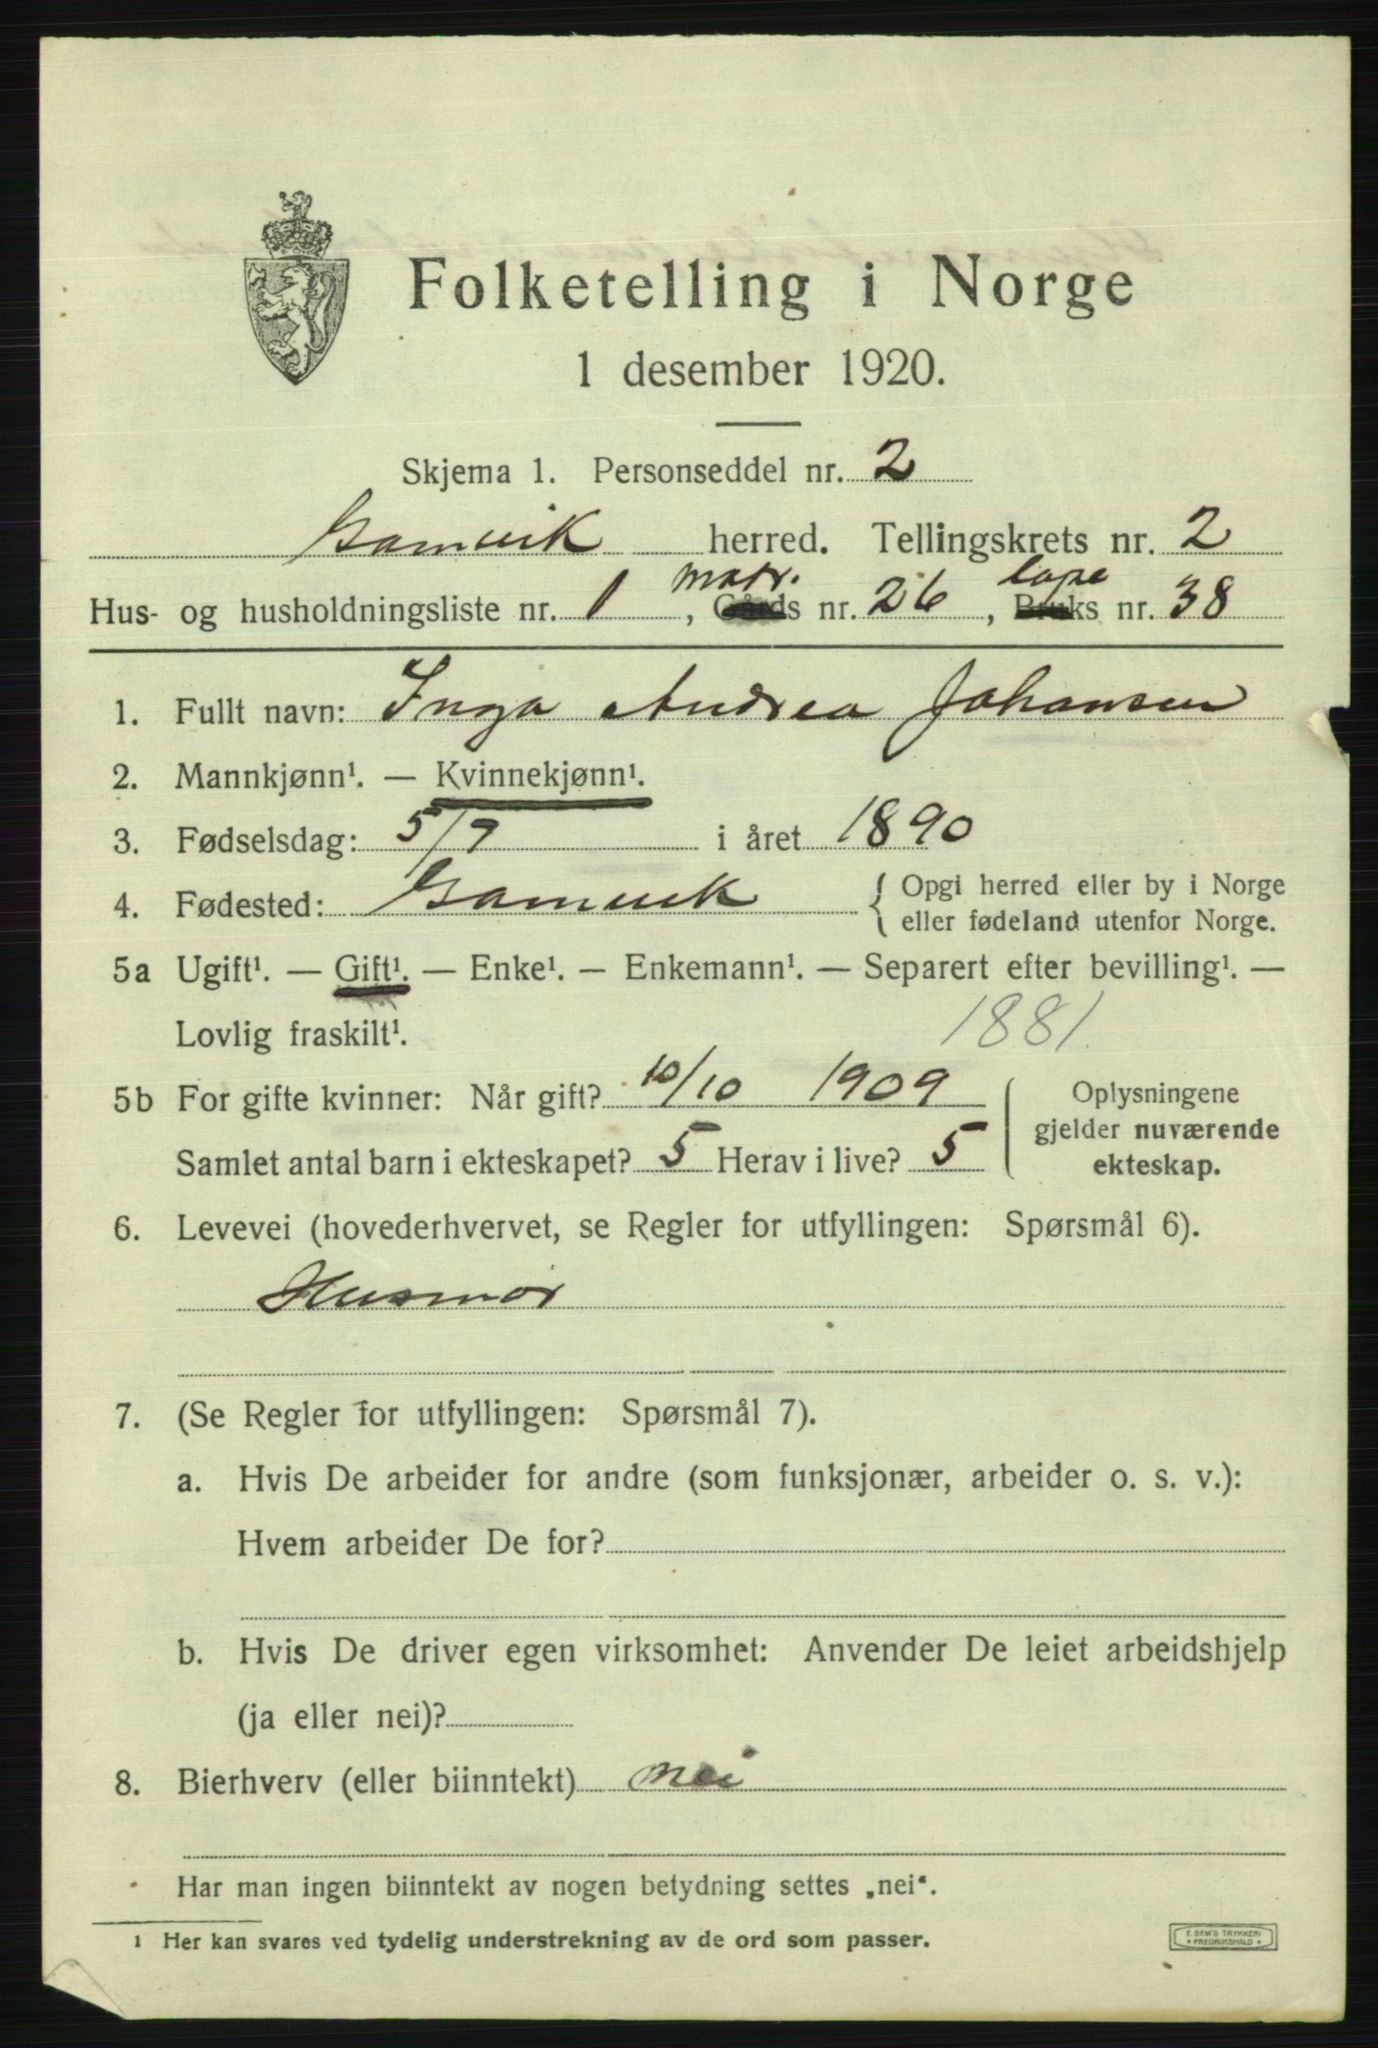 Folketelling i Norge
1 desember 1920.
Skjema 1. Personseddel nr. 2
Gamvik herred. Tellingskrets nr. 2
matr. løpe
Hus- og husholdningsliste nr. 1, Gårds nr. 26, Bruks nr. 38
1. Fullt navn: Inga Andrea Johansen
2. Mannkjønn¹. — Kvinnekjønn¹.
3. Fødselsdag: 5/7 i året 1890
4. Fødested: Gamvik { Opgi herred eller by i Norge
eller fødeland utenfor Norge.
5a Ugift¹. — Gift¹. — Enke¹. — Enkemann¹. — Separert efter bevilling¹. —
Lovlig fraskilt¹. 1881.
5b For gifte kvinner: Når gift? 10/10 1909
Samlet antal barn i ekteskapet? 5 Herav i live? 5
Oplysningene
gjelder nuværende
ekteskap.
6. Levevei (hovederhvervet, se Regler for utfyllingen: Spørsmål 6).
Husmor
7. (Se Regler for utfyllingen: Spørsmål 7).
a. Hvis De arbeider for andre (som funksjonær, arbeider o. s. v.):
Hvem arbeider De for?
b. Hvis De driver egen virksomhet: Anvender De leiet arbeidshjelp
(ja eller nei)?
8. Bierhverv (eller biinntekt) nei
Har man ingen biinntekt av nogen betydning settes „nei“.
1 Her kan svares ved tydelig understrekning av de ord som passer.
E. SEM'S TRYKKERI
FREDRIKSHALD